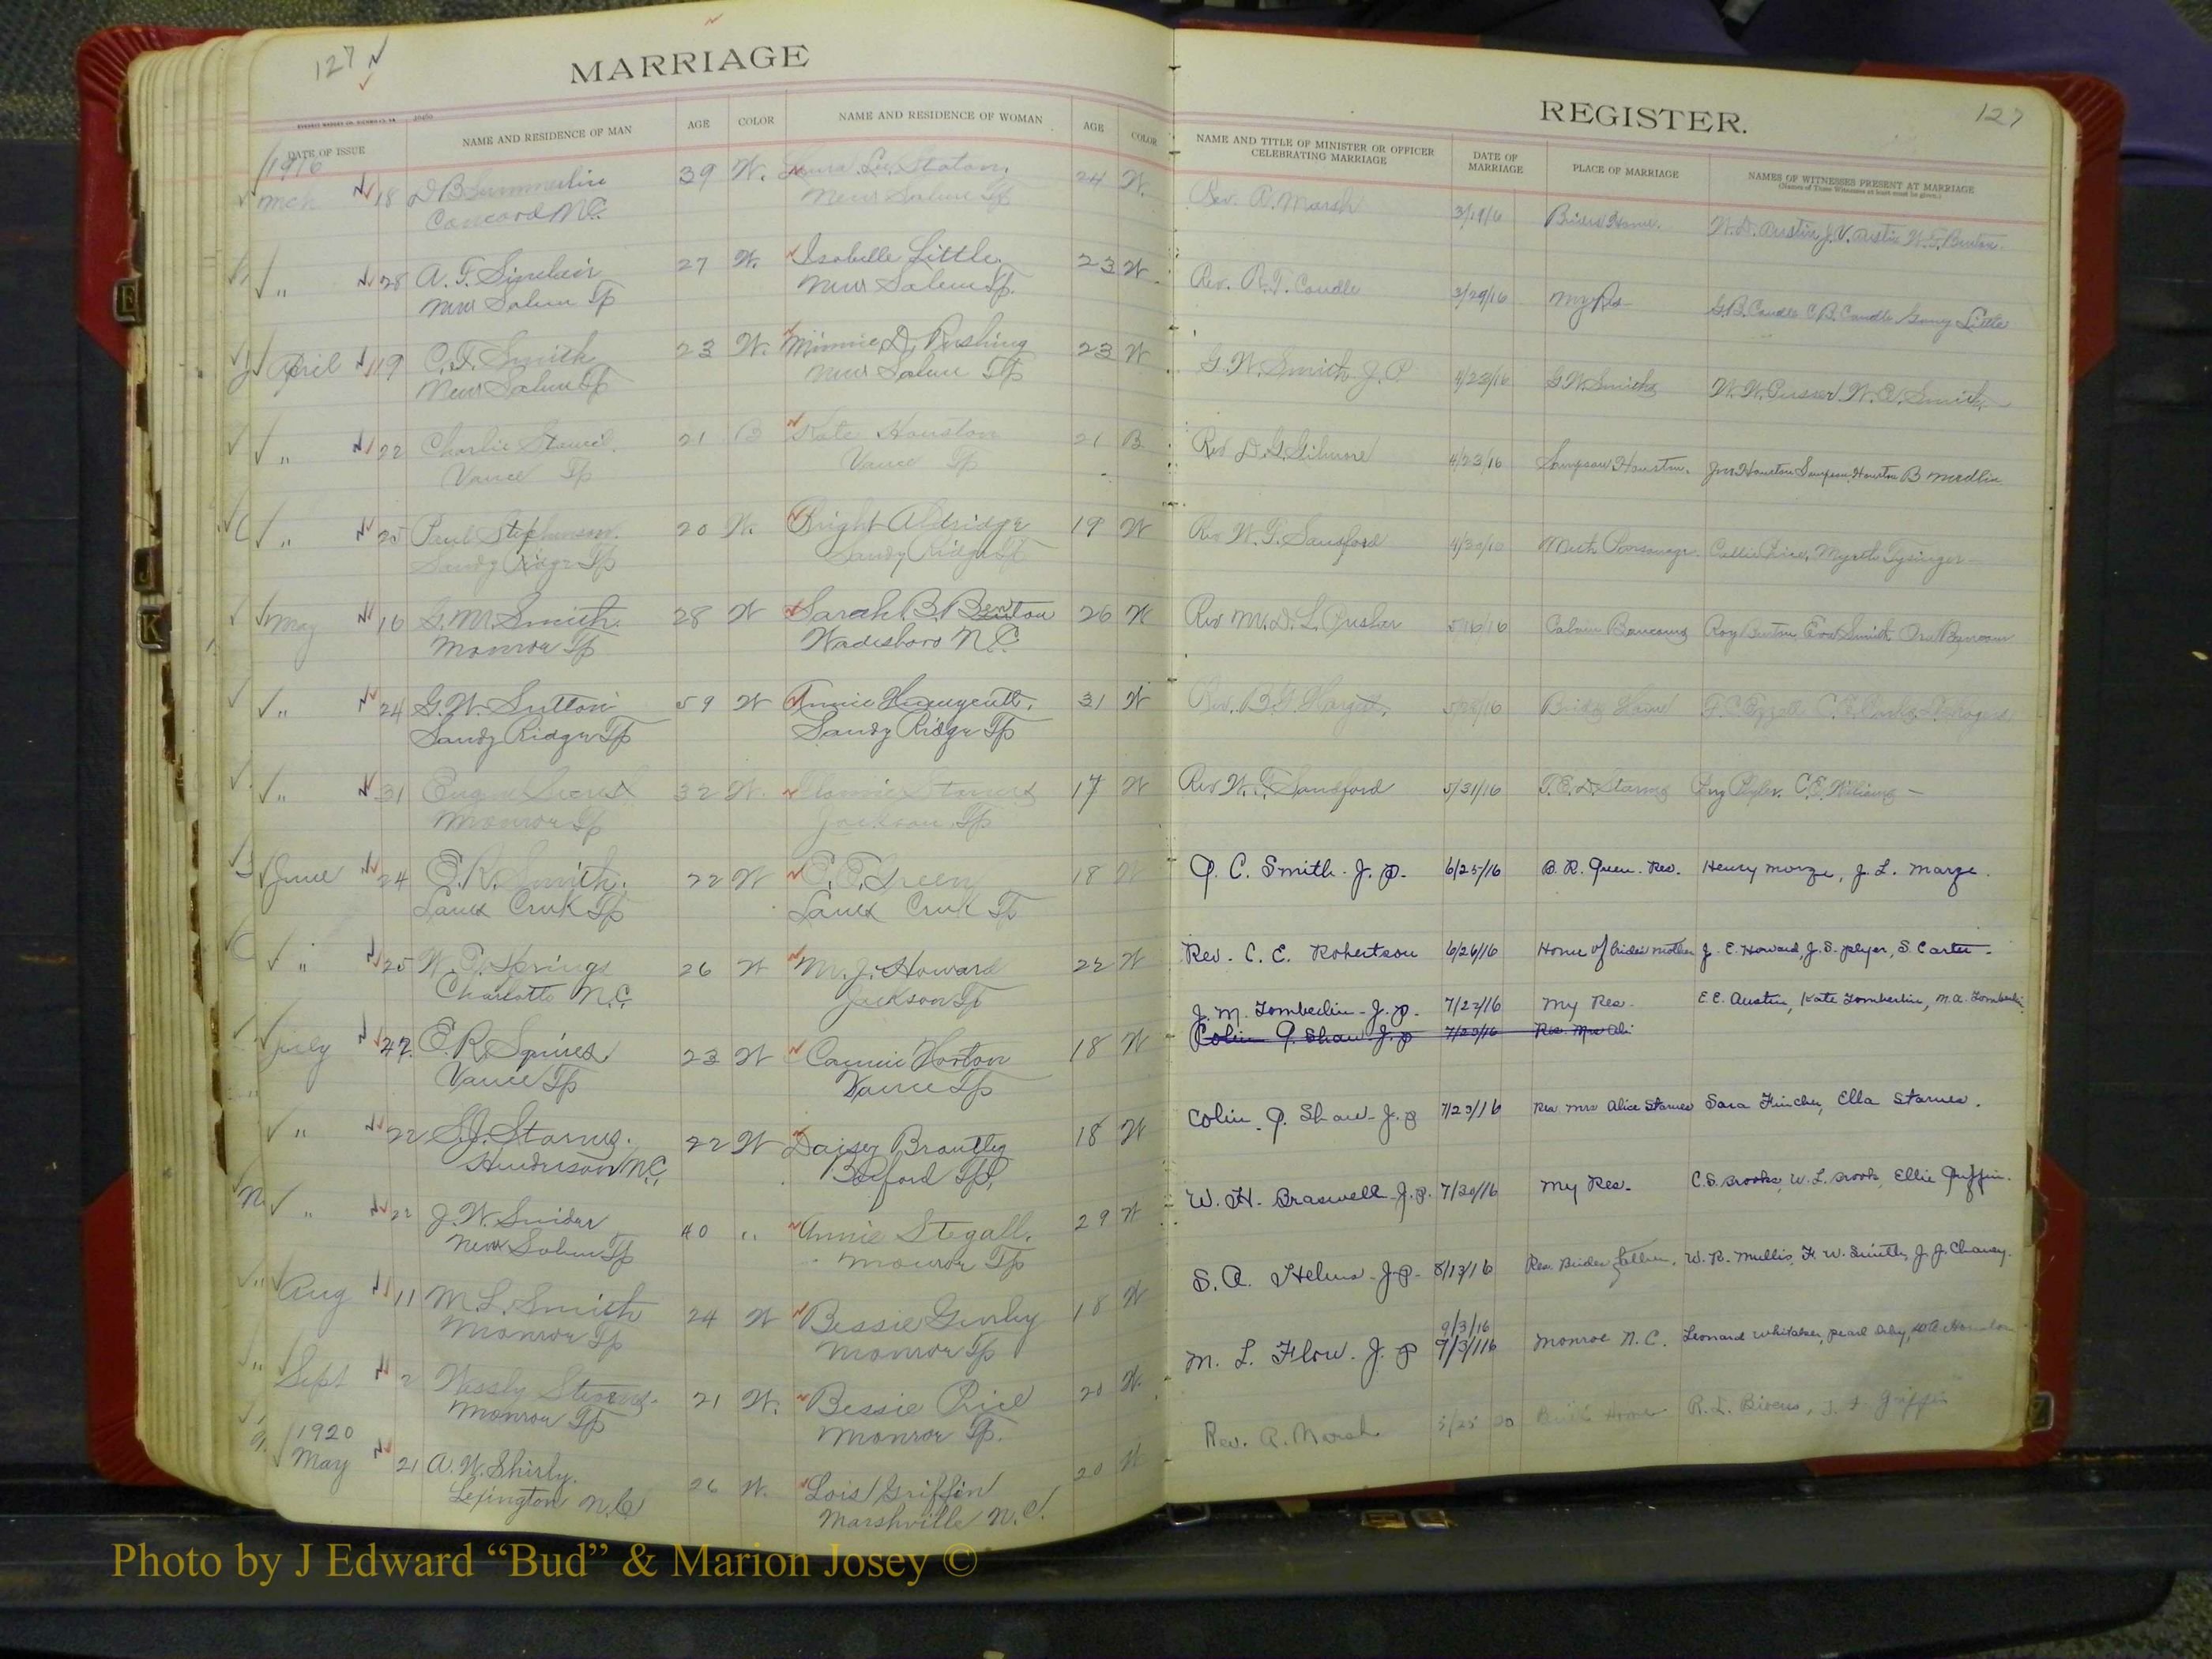 127
MARRIAGE
DATE OF ISSUE NAME AND RESIDENCE OF MAN AGE COLOR NAME AND RESIDENCE OF WOMAN AGE COLOR
1916
Mch 18 D B Summerlin 39 W. Laura Lee Staton, 24 W.
Concord N.C. New Salem Tp
" 28 A. F. Sinclair 27 W. Isabelle Little 23 W
New Salem Tp New Salem Tp.
April 19 C. F. Smith 23 W. Minnie D. Rushing 23 W
New Salem Tp New Salem Tp
" 22 Charlie 21 B Kate Houston 21 B
Vance Tp Vance Tp
" 25 Paul Stephenson. 20 W. Bright Aldridge 19 W
Sandy Ridge Tp Sandy Ridge Tp
May 16 G. M. Smith. 28 W Sarah B. Benton 26 W
Monroe Tp Wadesboro N.C.
" 24 G. W. Sutton 59 W Annie 31 W
Sandy Ridge Tp Sandy Ridge Tp
" 31 Eugene Secrest 32 W. Starnes 17 W
Monroe Tp Jackson Tp
June 24 E. R. Smith. 22 W E. E. Green 18 W
Lanes Creek Tp Lanes Creek Tp
" 25 W. Springs 26 W M. J. Howard 22 W
Charlotte N.C. Jackson Tp
July 22. E. R. Spires 23 W Cannie Horton 18 W
Vance Tp Vance Tp
" 22 S. J. Starnes. 22 W Daisey Brantley 18 W
Henderson N.C. Buford Tp.
" 22 J. W. Snider 40 " Annie Stegall. 29 W
New Salem Tp Monroe Tp
Aug 11 M. L. Smith 24 W Bessie Gurley 18 W
Monroe Tp Monroe Tp
Sept 2 Wessly Stevens. 21 W. Bessie Price 20 W.
Monroe Tp Monroe Tp.
1920
May 21 A. W. Shirly. 26 W. Lois Griffin 20 W
Lexington N.C. Marshville N.C.
REGISTER.
127
NAME AND TITLE OF MINISTER OR OFFICER CELEBRATING MARRIAGE DATE OF MARRIAGE PLACE OF MARRIAGE NAMES OF WITNESSES PRESENT AT MARRIAGE
(Names of Three Witnesses at least must be given.)
Rev. A. Marsh Brides Home. W. D. Austin, J. V. Austin W. F. Benton.
Rev. R. T. Caudle 3/29/16 My Res G. B. Caudle C. B. Caudle Little
G. W. Smith J. P. 4/23/16 G. W. Smiths W. W. Presser W. E. Smith
Rev D. G. Gilmore 4/23/16 Sampson Houston. Jno Houston Sampson Houston B Medlin
Rev W. F. Sandford 4/30/16 Meth Parsonage. Callie Price, Myrtle Tysinger
Rev Mr. D. L. 5/16/16 Calvin Baucoms Roy Benton, Eva Smith, Ora Baucom
Rev. B. G. 5/28/16 Brides Home
Rev W. F. Sandford 5/31/16 T. E. D. Starnes Plyler. C. E. Williams
Q. C. Smith - J. P. 6/25/16 B. R. Green - Res. Henry Marze, J. L. Marze.
Rev. C. E. Robertson 6/26/16 Home of brides mother J. E. Howard, J. S. Plyer, S. Carter.
J. M. Tomberlin - J. P. 7/22/16 My Res. E. E. Austin, Kate Tomberlin, M. A. Tomberlin
Colin Q. Shaw J. P 7/23/16 Res. Mrs Ali
Colin. Q. Shaw - J. P 7/23/16 Res Mrs Alice Starnes Sara Fincher, Ella Starnes.
W. H. Braswell - J. P. 7/30/16 My Res. C. S. Brooks, W. L. Brook, Ellie Griffin.
S. A. Helms - J. P. 8/13/16 Res. Brides father. W. R. Mullis, H. W. Smith, J. J. Chaney.
9/3/16
M. L. Flow - J. P 9/3/16 Monroe N.C. Leonard Whitaker, Pearl
Rev. A. Marsh 5/25 20 Home R. L. Bivens, J. F. Griffin
Photo by J Edward “Bud” & Marion Josey ©